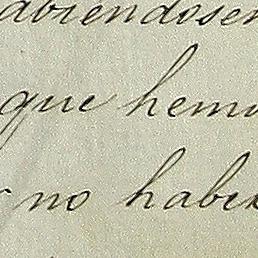 abiendosen
que hemo
no habie